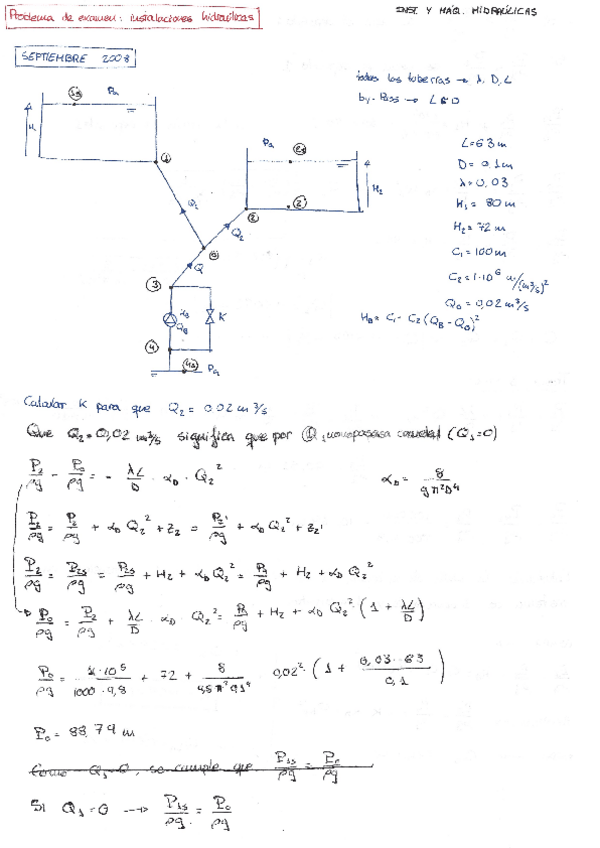 Problema de examen: instalaciones hidráulicas
INST. Y MÁQ. HIDRÁULICAS
SEPTIEMBRE 2008
todas las tuberías → λ, D, L
by-Pass → L≃0
1s
Pa
H1
1
Pa
2s
H2
2
2'
Q1
Q2
0
Q
3
HB
QB
K
4
4s
Pa
L=63 m
D=0,1m
λ=0,03
H1=80m
H2=72m
C1=100m
C2=1·10^6 m/(m³/s)²
Q0=0,02 m³/s
HB = C1 - C2 (QB - Q0)²
Calcular K para que Q2 = 0.02 m³/s
Que Q2=0,02 m³/s significa que por ① no pasa caudal (Q1=0)
P2/ρg - P0/ρg = - λL/D · αD · Q2²
αD = 8/gπ²D⁴
P2/ρg = P2/ρg + αD Q2² + z2 = P2'/ρg + αD Q2² + z2'
P2/ρg = P2s/ρg = P2s/ρg + H2 + αD Q2² = Pa/ρg + H2 + αD Q2²
P0/ρg = P2/ρg + λL/D · αD Q2² = Pa/ρg + H2 + αD Q2² (1 + λL/D)
P0/ρg = 1·10⁵/1000·9,8 + 72 + 8/9,8π²0,1⁴ · 0,02² · (1 + 0,03·63/0,1)
P0 = 88,79 m
Como Q1=0, se cumple que P1s/ρg = P0/ρg
Si Q1=0 → P1s/ρg = P0/ρg